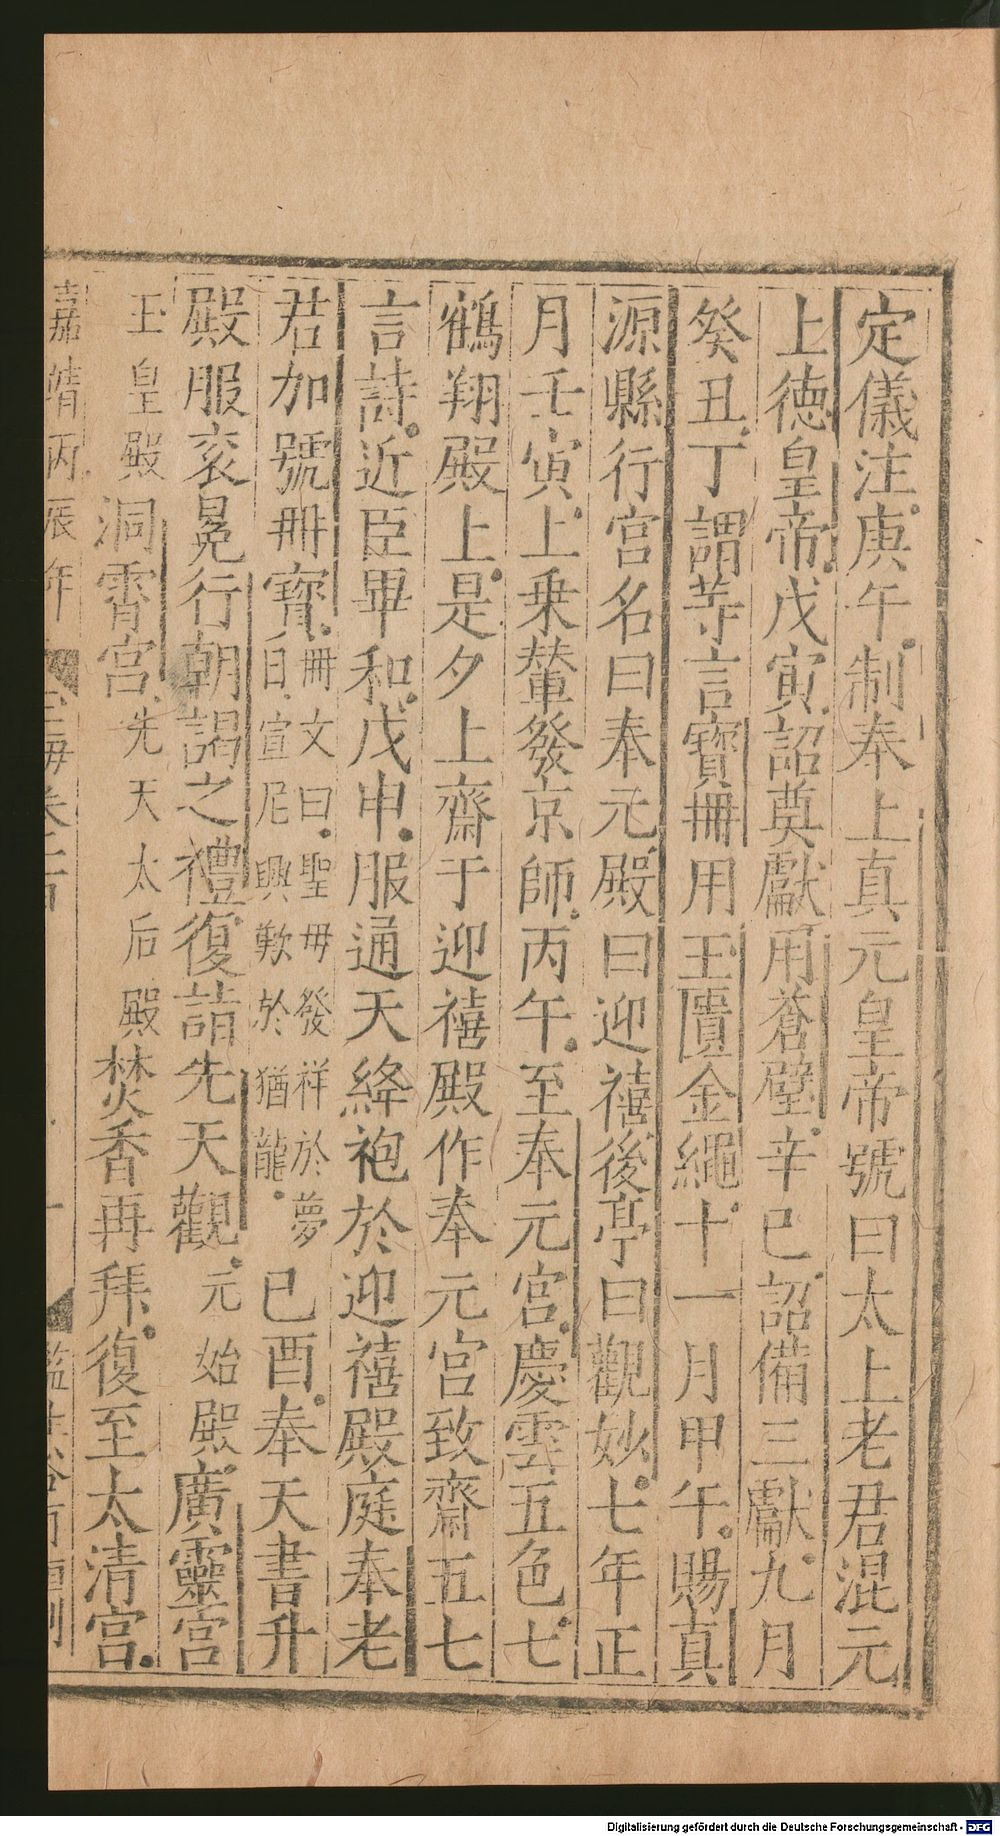 定儀注庚午制奉上真元皇帝號曰太上老君混元
上德皇帝戊寅詔奠獻用蒼璧辛巳詔備三獻九月
癸丑丁謂等言寶冊用玉匱金繩十一月甲午賜真
源縣行宮名曰奉元殿曰迎禧後亭曰觀妙七年正
月壬寅上乗輦發京師丙午至奉元宮慶雲五色七
鶴翔殿上是夕上齋于迎禧殿作奉元宮致齋五七
言詩近臣畢和戊申服通天絳袍於迎禧殿庭奉老
君加號冊寶冊文曰聖毋發祥於夢日宣尼興歎於猶龍已酉奉天書升
殿服衮冕行朝謁之禮復詣先天觀元始殿廣靈宮
玉皇殿洞霄宮先天太后殿焚香再拜復至太清宮
嘉靖丙辰年
Digitalisierung gefördert durch die Deutsche Forschungsgemeinschaft - DFG